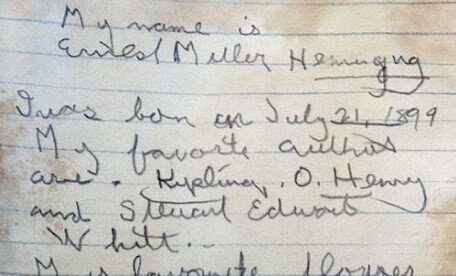 My name is
Ernest Miller Hemingway
I was born on July 21, 1899
My favorite authors
are. Kypling, O. Henry
and Steuart Edward
Whitt.
My favorite flower